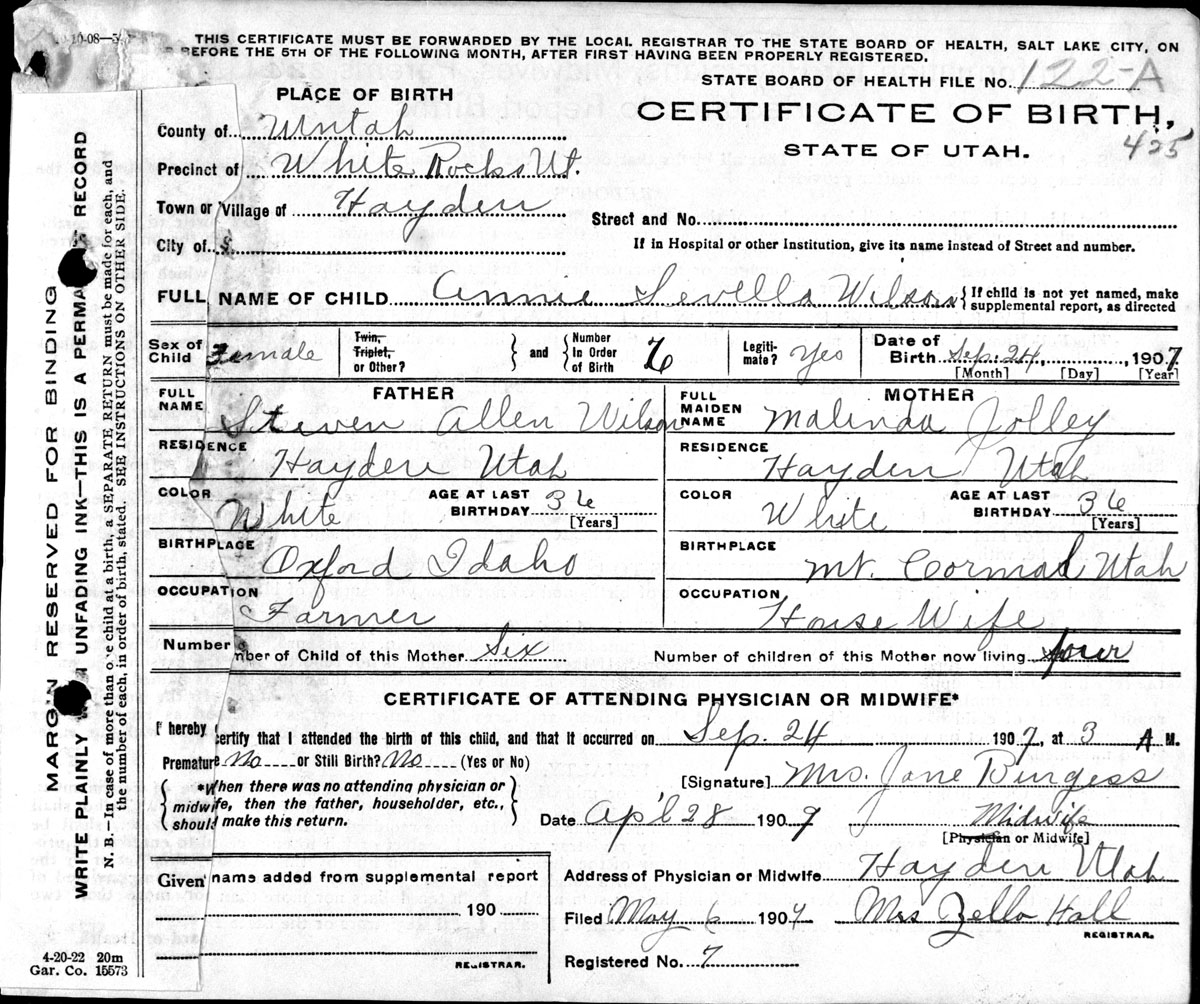 10-08
THIS CERTIFICATE MUST BE FORWARDED BY THE LOCAL REGISTRAR TO THE STATE BOARD OF HEALTH, SALT LAKE CITY, ON
BEFORE THE 5TH OF THE FOLLOWING MONTH, AFTER FIRST HAVING BEEN PROPERLY REGISTERED.
STATE BOARD OF HEALTH FILE No. 122-A
PLACE OF BIRTH
CERTIFICATE OF BIRTH,
STATE OF UTAH.
425
County of Uintah
Precinct of White Rocks Ut.
Town or Village of Hayden
Street and No.
City of
If in Hospital or other Institution, give its name instead of Street and number.
FULL NAME OF CHILD Annie Levella Wilson { If child is not yet named, make
supplemental report, as directed
Sex of Child Female
Twin, Triplet, or Other? } and { Number In Order of Birth 6
Legiti-mate? Yes
Date of Birth Sep. 24, 1907
[Month] [Day] [Year]
FATHER
FULL NAME Steven Allen Wilson
RESIDENCE Hayden Utah
COLOR White AGE AT LAST BIRTHDAY 36 [Years]
BIRTHPLACE Oxford Idaho
OCCUPATION Farmer
MOTHER
FULL MAIDEN NAME Malinda Jolley
RESIDENCE Hayden Utah
COLOR White AGE AT LAST BIRTHDAY 36 [Years]
BIRTHPLACE Mt. Utah
OCCUPATION House Wife
Number
mber of Child of this Mother Six Number of children of this Mother now living four
CERTIFICATE OF ATTENDING PHYSICIAN OR MIDWIFE*
I hereby certify that I attended the birth of this child, and that it occurred on Sep. 24 1907, at 3 A M.
Premature No or Still Birth? No (Yes or No)
[Signature] Mrs. Jane Burgess
{ *When there was no attending physician or
midwife, then the father, householder, etc.,
should make this return. }
Date Apl 28 1909 Midwife
[Physician or Midwife]
Given name added from supplemental report
190
REGISTRAR.
Address of Physician or Midwife Hayden Utah
Filed May 6 190 Mrs Zella Hall
REGISTRAR.
Registered No. 7
MARGIN RESERVED FOR BINDING
WRITE PLAINLY UNFADING INK—THIS IS A PERMA RECORD
N. B.—In case of more than one child at a birth, a SEPARATE RETURN must be made for each, and
the number of each, in order of birth, stated. SEE INSTRUCTIONS ON OTHER SIDE.
4-20-22 20m
Gar. Co. 15573